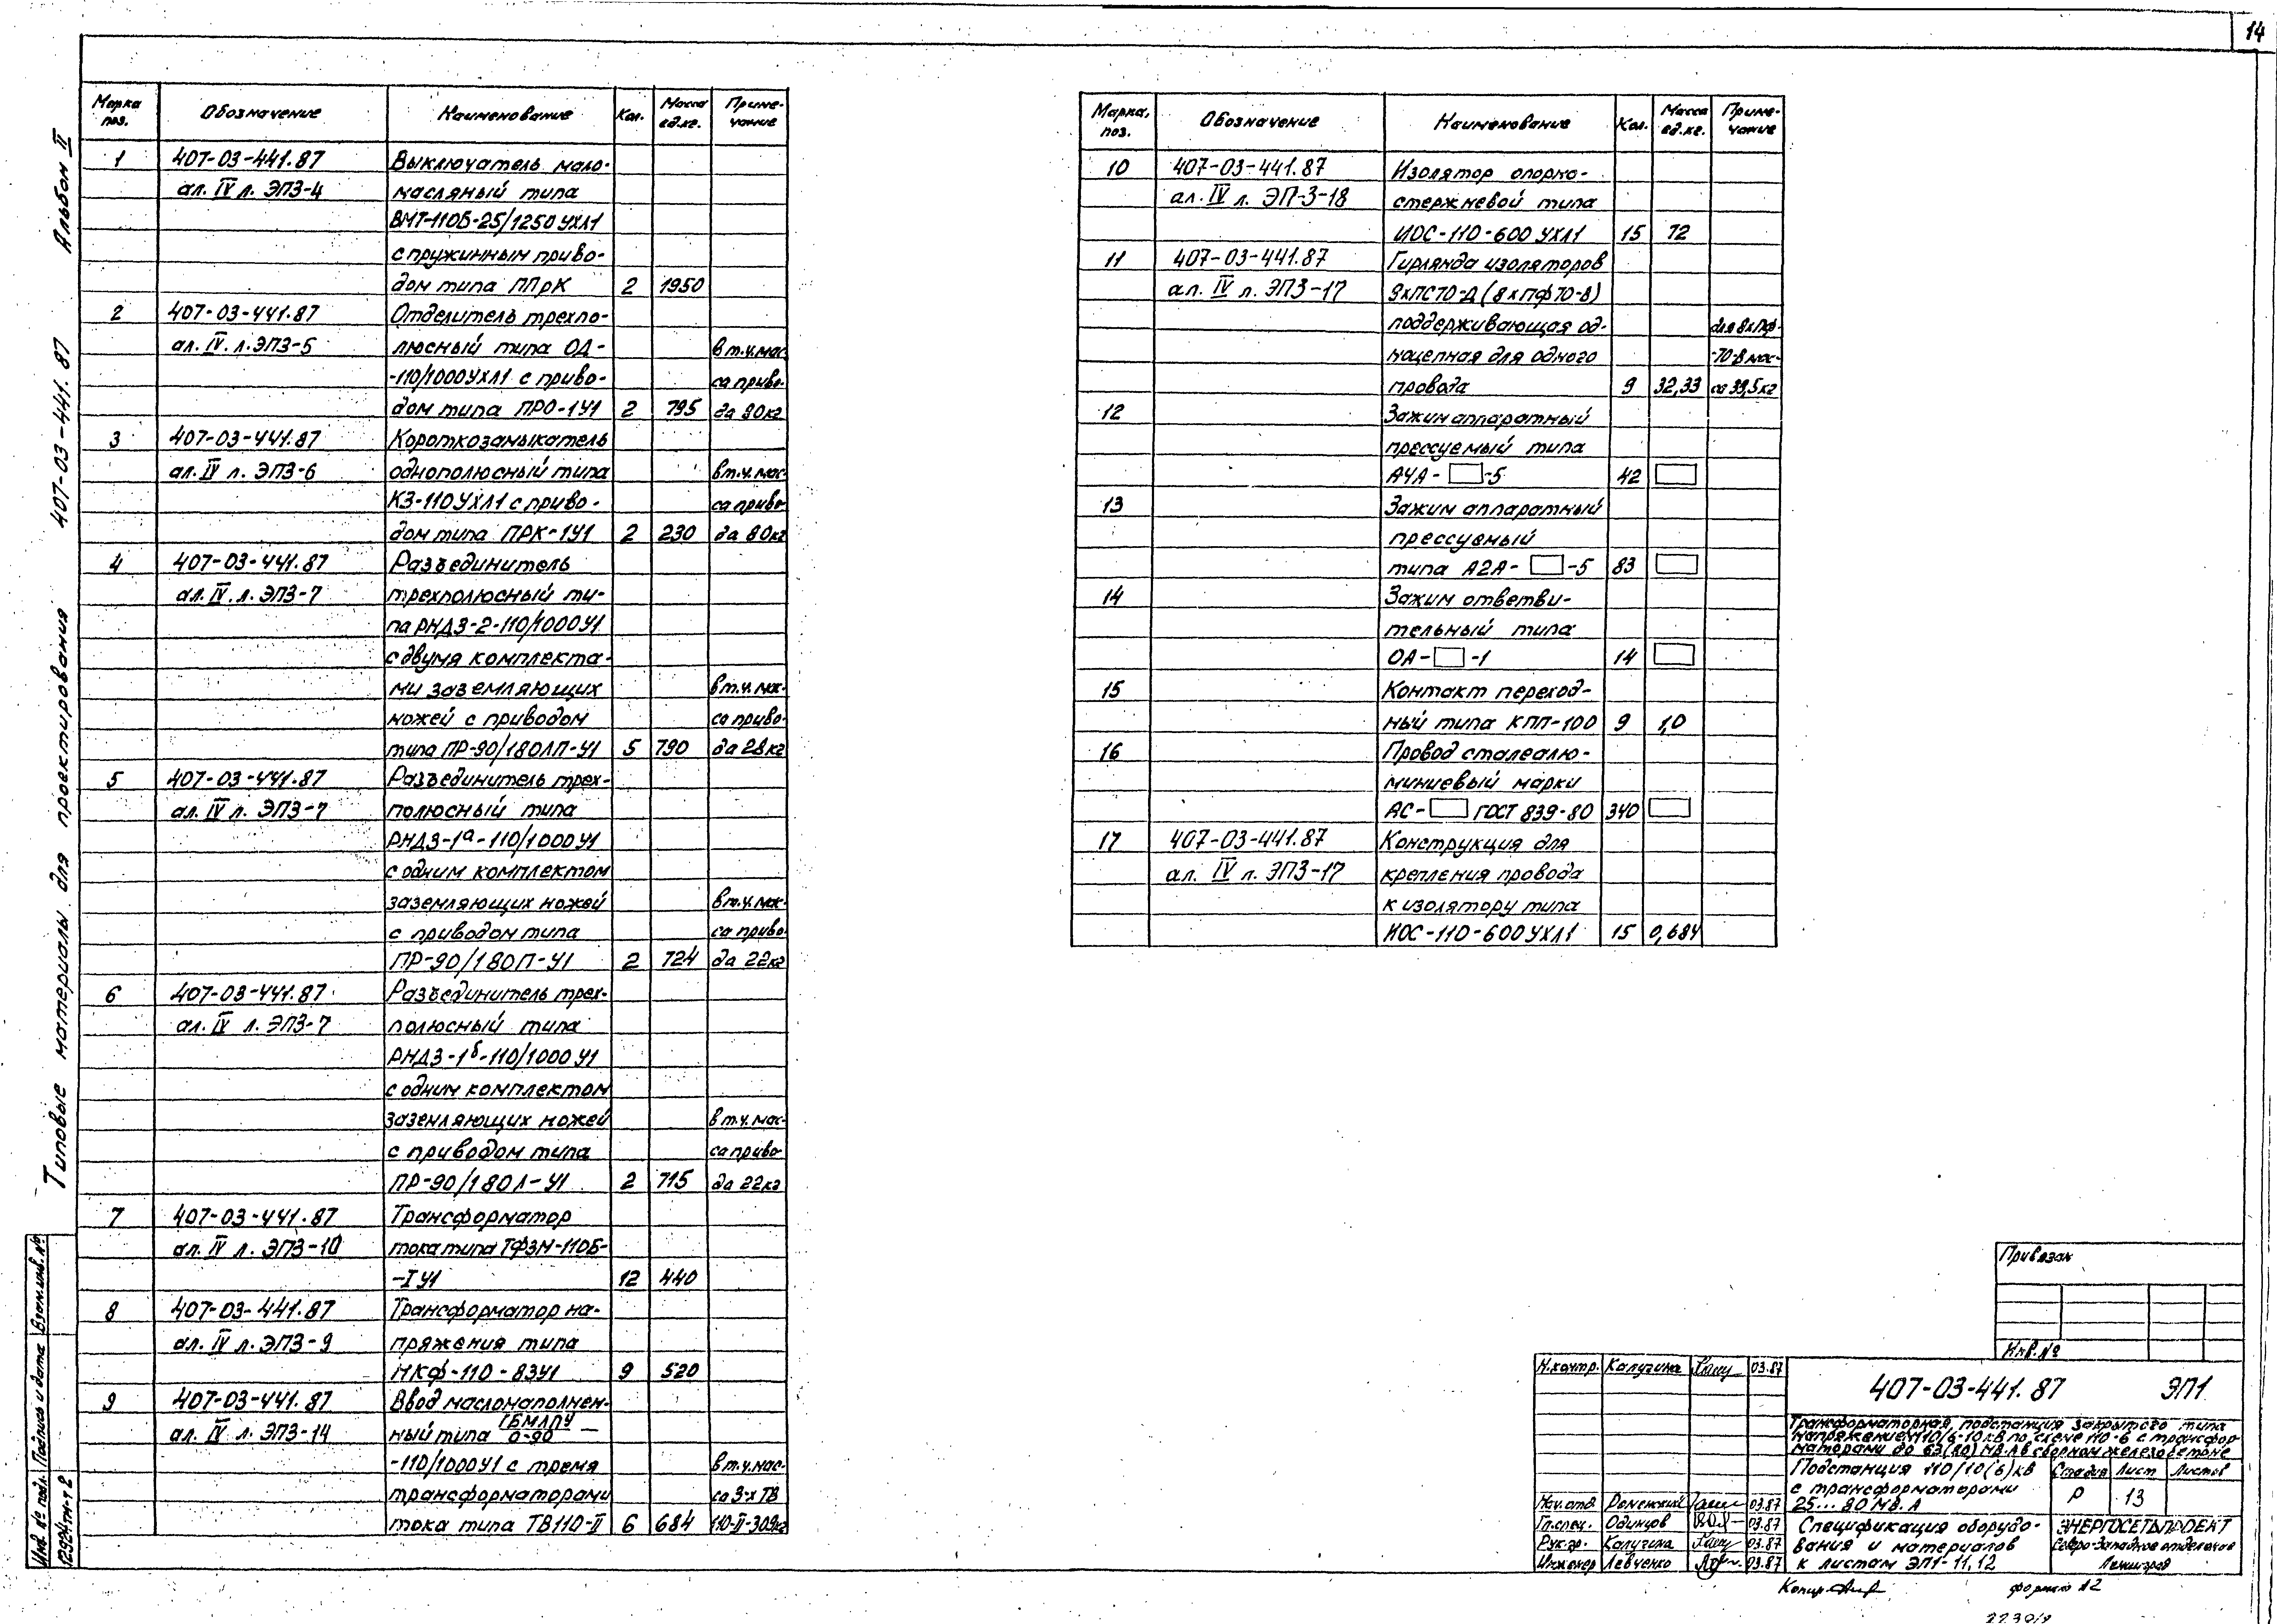 14
Альбом II
407-03-441.87
Типовые материалы для проектирования
Марка поз. Обозначение Наименование Кол. Масса ед.кг. Приме-чание
1 407-03-441.87 Выключатель мало-
ал. IV л. ЭП3-4 масляный типа
ВМТ-110Б-25/1250 УХЛ1
с пружинным приво-
дом типа ППрК 2 1950
2 407-03-441.87 Отделитель трехпо-
ал. IV. л. ЭП3-5 люсный типа ОД- в т.ч. мас-
-110/1000 УХЛ1 с приво- са приво-
дом типа ПРО-1У1 2 795 да 80кг
3 407-03-441.87 Короткозамыкатель
ал. IV л. ЭП3-6 однополюсный типа в т.ч. мас-
КЗ-110 УХЛ1 с приво- са приво-
дом типа ПРК-1У1 2 230 да 80кг
4 407-03-441.87 Разъединитель
ал. IV. л. ЭП3-7 трехполюсный ти-
па РНДЗ-2-110/1000 У1
с двумя комплекта-
ми заземляющих в т.ч. мас-
ножей с приводом са приво-
типа ПР-90/180ЛП-У1 5 790 да 28кг
5 407-03-441.87 Разъединитель трех-
ал. IV л. ЭП3-7 полюсный типа
РНДЗ-1а-110/1000 У1
с одним комплектом
заземляющих ножей в т.ч. мас-
с приводом типа са приво-
ПР-90/180П-У1 2 724 да 22кг
6 407-03-441.87 Разъединитель трех-
ал. IV л. ЭП3-7 полюсный типа
РНДЗ-1б-110/1000 У1
с одним комплектом
заземляющих ножей в т.ч. мас-
с приводом типа са приво-
ПР-90/180Л-У1 2 715 да 22кг
7 407-03-441.87 Трансформатор
ал. IV л. ЭП3-10 тока типа ТФЗМ-110Б-
-I У1 12 440
8 407-03-441.87 Трансформатор на-
ал. IV л. ЭП3-9 пряжения типа
НКФ-110-83У1 9 520
9 407-03-441.87 Ввод маслонаполнен-
ал. IV л. ЭП3-14 ный типа ГБМЛПУ 0-90 —
-110/1000 У1 с тремя в т.ч. мас-
трансформаторами са 3-х ТВ
тока типа ТВ110-II 6 684 110-II-309кг
Марка, поз. Обозначение Наименование Кол. Масса ед.кг. Приме-чание
10 407-03-441.87 Изолятор опорно-
ал. IV л. ЭП-3-18 стержневой типа
ИОС-110-600 УХЛ1 15 72
11 407-03-441.87 Гирлянда изоляторов
ал. IV л. ЭП3-17 9хПС70-Д (8хПФ70-В)
поддерживающая од- для 8хПФ-
ноцепная для одного -70-В мас-
провода 9 32,33 са 39,5кг
12 Зажим аппаратный
прессуемый типа
А4А- -5 42
13 Зажим аппаратный
прессуемый
типа А2А- -5 83
14 Зажим ответви-
тельный типа
ОА- -1 14
15 Контакт переход-
ный типа КПП-100 9 1,0
16 Провод сталеалю-
миниевый марки
АС- ГОСТ 839-80 340
17 407-03-441.87 Конструкция для
ал. IV л. ЭП3-17 крепления провода
к изолятору типа
ИОС-110-600 УХЛ1 15 0,684
Привязан
Инв. №
Н.контр. Калугина 03.87
407-03-441.87 ЭП1
Трансформаторная подстанция закрытого типа
напряжением 110/6-10 кВ по схеме 110-6 с трансфор-
маторами до 63(80) МВ.А в сборном железобетоне
Подстанция 110/10(6) кВ
с трансформаторами
25...80 МВ.А
Стадия Лист Листов
Р 13
Нач.отд Роменский 03.87
Гл.спец. Одинцов 03.87
Рук.гр. Калугина 03.87
Инженер Левченко 03.87
Спецификация оборудо-
вания и материалов
к листам ЭП1-11,12
ЭНЕРГОСЕТЬПРОЕКТ
Северо-Западное отделение
Ленинград
Копир.
формат А2
Инв. № подл. Подпись и дата Взам.инв.№
12994тм-т2